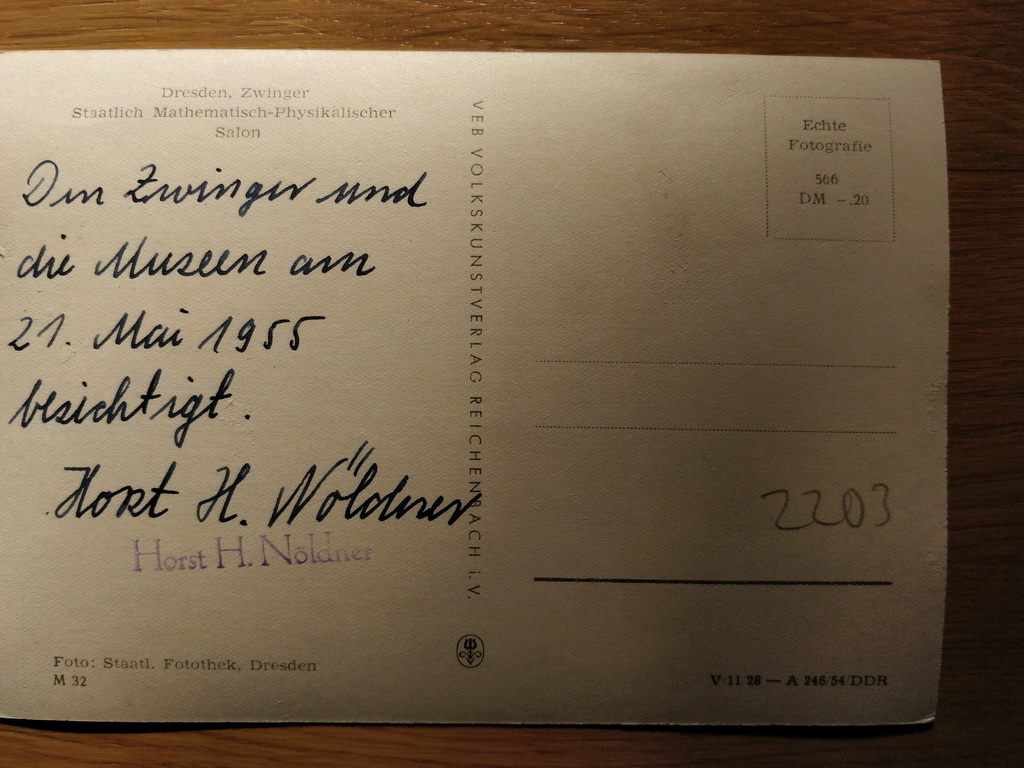 Dresden, Zwinger
Staatlich Mathematisch-Physikalischer
Salon
Den Zwinger und
die Museen am
21. Mai 1955
besichtigt.
Horst H. Nöldner
Horst H. Nöldner
Foto: Staatl. Fotothek, Dresden
M 32
VEB VOLKSKUNSTVERLAG REICHENBACH i. V.
Echte
Fotografie
566
DM -.20
2203
V 11 28 — A 246/54 DDR